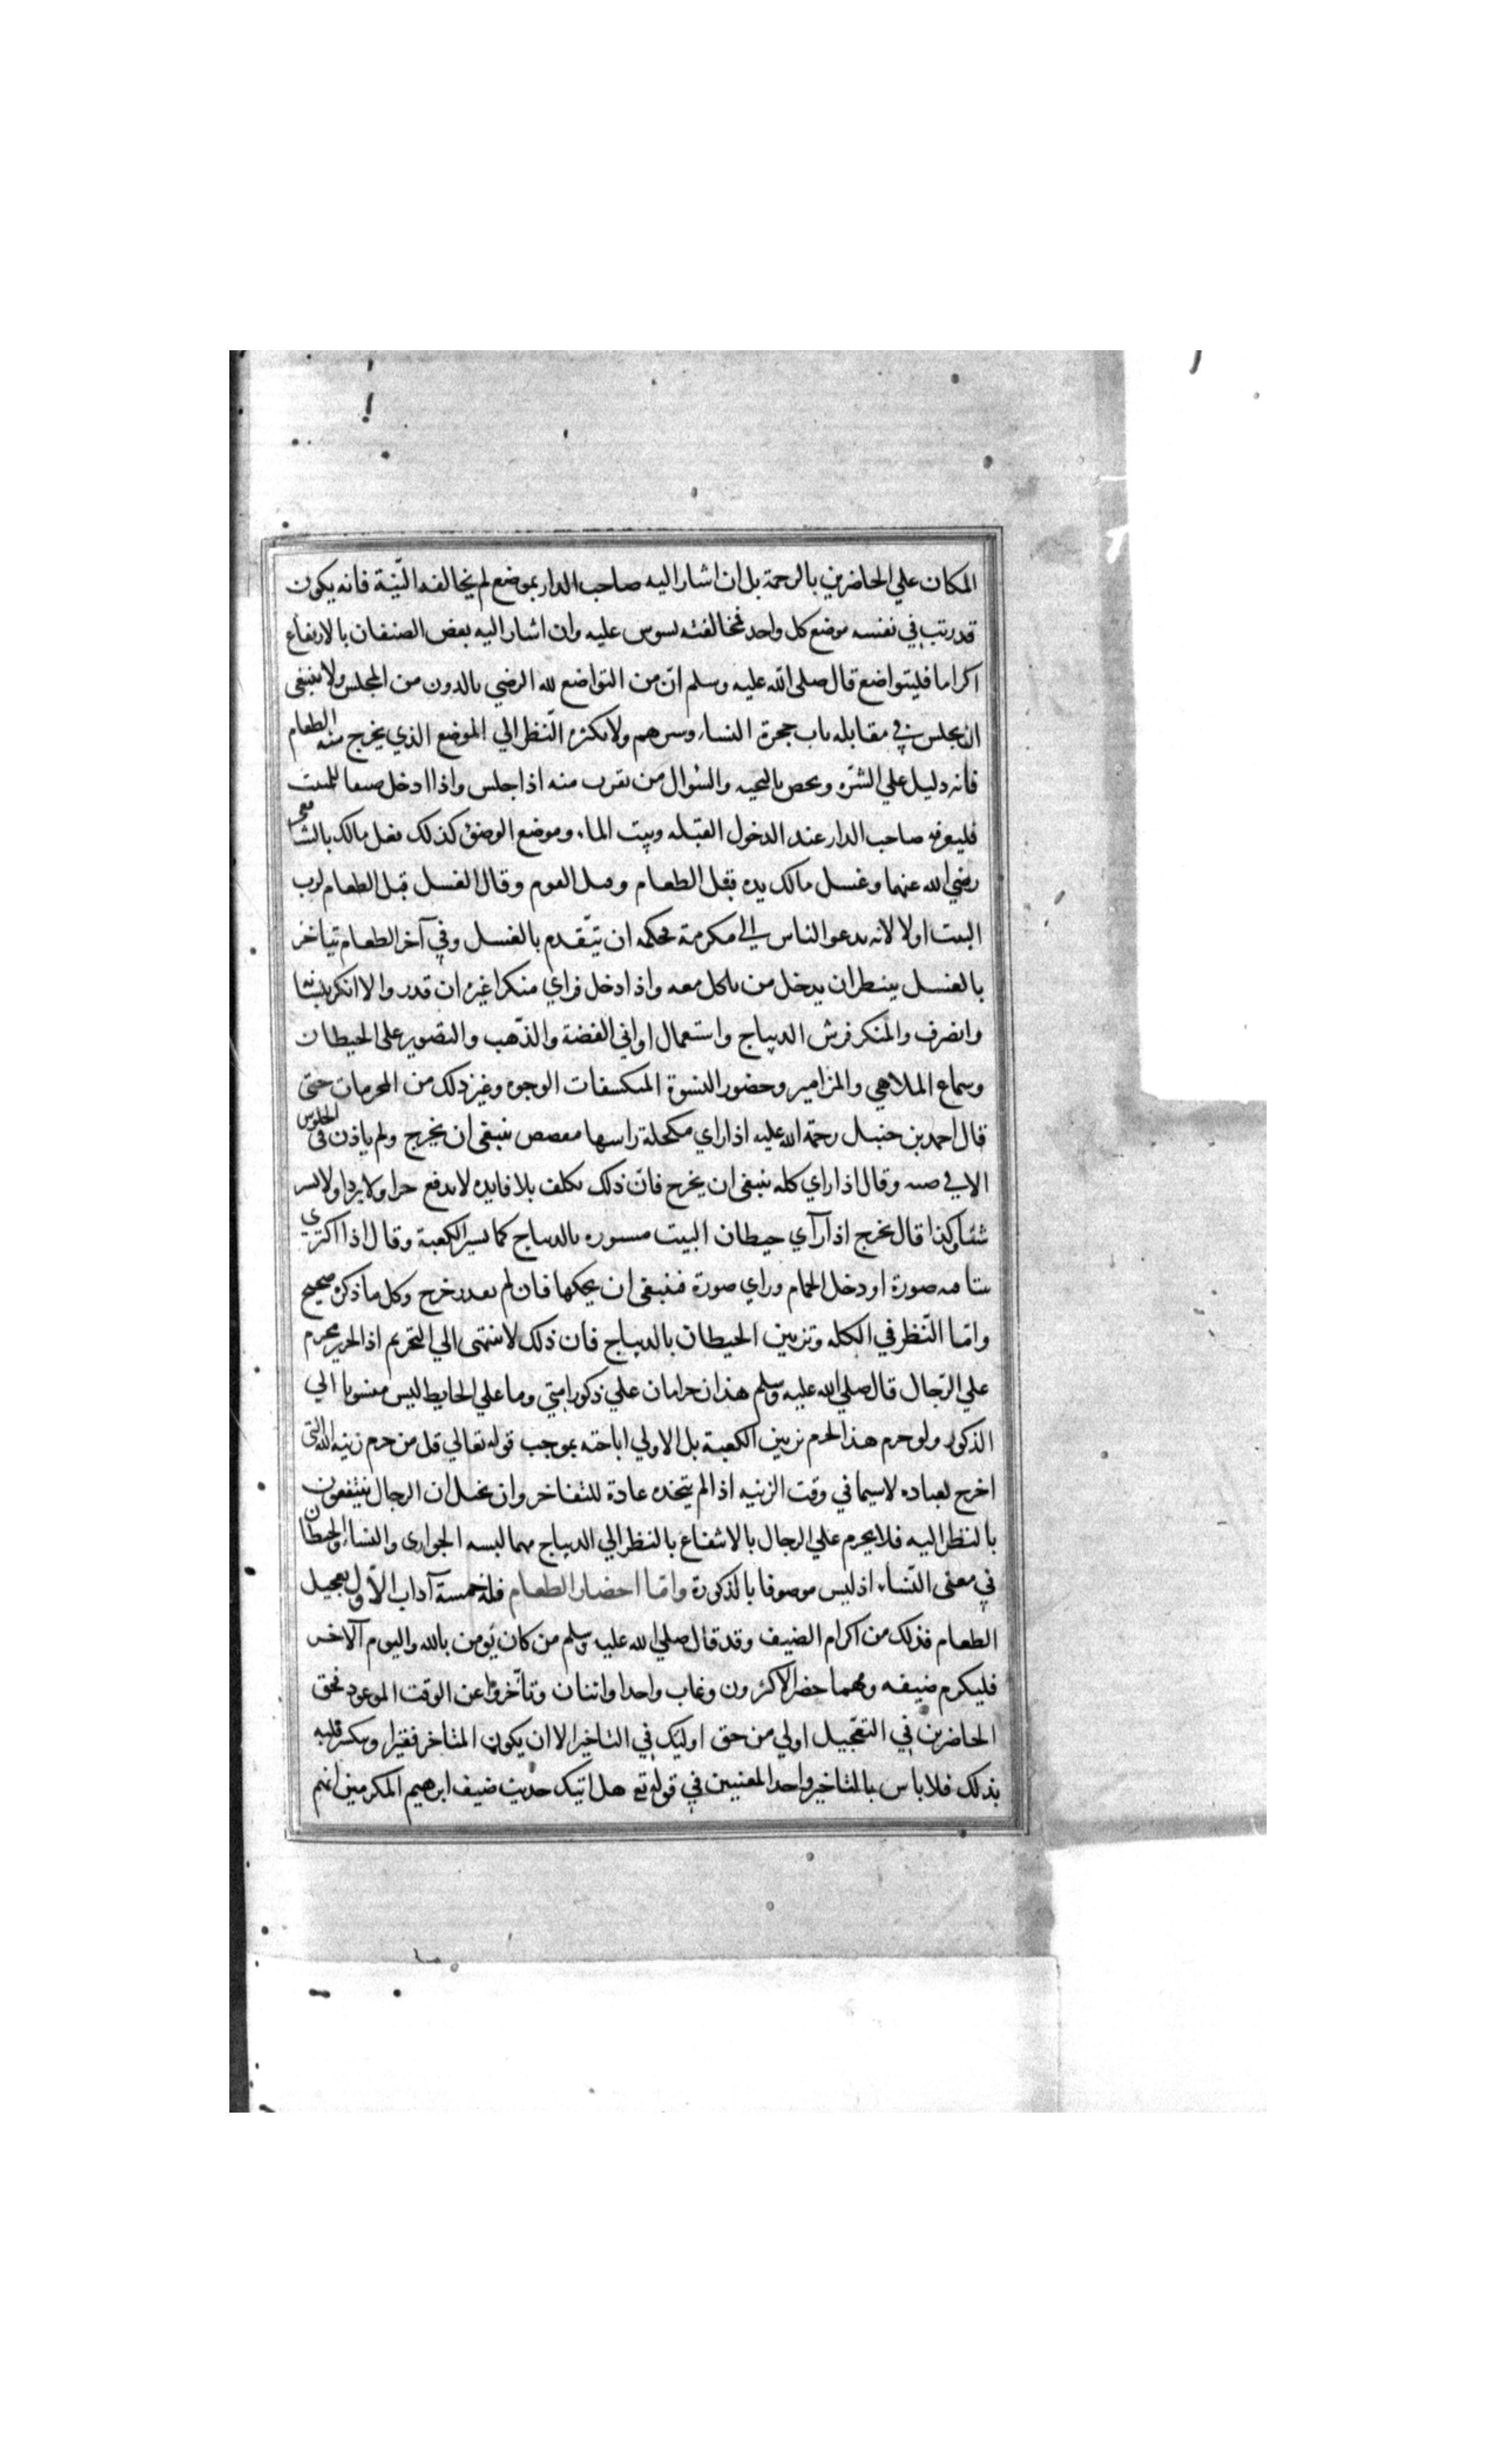 المكان علي الحاضرين بالرحمة بل ان اشار اليه صاحب الدار بموضع لم يخالفه البتية فانه يكون
قد رتب في نفسه موضع كل واحد فمخالفته يسوس عليه وان اشار اليه بعض الضيفان بالارتفاع
اكراما فليتواضع قال صلى الله عليه وسلم ان من التواضع لله الرضي بالدون من المجلس ولا ينبغي
ان يجلس في مقابله باب حجرة النساء وسرهم ولا يكثر النظر الي الموضع الذي يخرج منه الطعام
فانه دليل علي الشره ويخص بالتحيه والسؤال من يقرب منه اذا جلس واذا ادخل ضيفا للمبيت
فليعرفه صاحب الدار عند الدخول القبله وبيت الماء وموضع الوضؤ كذلك فعل مالك بالشافعي
رضي الله عنهما وغسل مالك يده قبل الطعام وقبل القوم وقال الغسل قبل الطعام لرب
البيت اولا لانه يدعو الناس الى مكرمة فحكمه ان يتقدم بالغسل وفي آخر الطعام يتاخر
بالغسل ينتظر ان يدخل من ياكل معه واذا دخل فراي منكرا غيره ان قدر والا انكر بلسانه
وانصرف والمنكر فرش الديباج واستعمال اواني الفضة والذهب والتصوير على الحيطان
وسماع الملاهي والمزامير وحضور النسوة المتكشفات الوجوه وغير ذلك من المحرمات حتى
قال احمد بن حنبل رحمة الله عليه اذا راي مكحلة راسها مفضض ينبغي ان يخرج ولم ياذن في الجلوس
الا في ضبه وقال اذا راي كله ينبغي ان يخرج فان ذلك تكلف بلا فايده لا يدفع حرا ولا بردا ولا يستر
شئا وكذا قال يخرج اذا رآي حيطان البيت مستوره بالديباج كما يستر الكعبة وقال اذا اكتري
بيتا فيه صورة او دخل الحمام وراي صورة فينبغي ان يحكها فان لم يقدر خرج وكل ما ذكره صحيح
وانما النظر في الكله وتزيين الحيطان بالديباج فان ذلك لا ينتهى الي التحريم اذ الحرير محرم
علي الرجال قال صلي الله عليه وسلم هذان حرامان علي ذكور امتي وما علي الحايط ليس منسوبا الي
الذكور ولو حرم هذا لحرم تزيين الكعبة بل الاولي اباحته بموجب قوله تعالي قل من حرم زينه الله التي
اخرج لعباده لا سيما في وقت الزينه اذا لم يتخذه عادة للتفاخر وان تخيل ان الرجال ينتفعون
بالنظر اليه فلا يحرم علي الرجال بالانتفاع بالنظر الي الديباج مهما لبسه الجواري والنساء والحيطان
في معنى النساء اذ ليس موصوفا بالذكورة واما احضار الطعام فله خمسة آداب الاول تعجيل
الطعام فذلك من اكرام الضيف وقد قال صلي الله عليه وسلم من كان يومن بالله واليوم الآخر
فليكرم ضيفه ومهما حضر الاكثرون وغاب واحد او اثنان وتأخروا عن الوقت الموعود فحق
الحاضرين في التعجيل اولي من حق اوليك في التاخير الا ان يكون المتاخر فقيرا وينكسر قلبه
بذلك فلا باس بالتاخير واحد المعنيين في قوله تع هل اتيك حديث ضيف ابرهيم المكرمين انهم